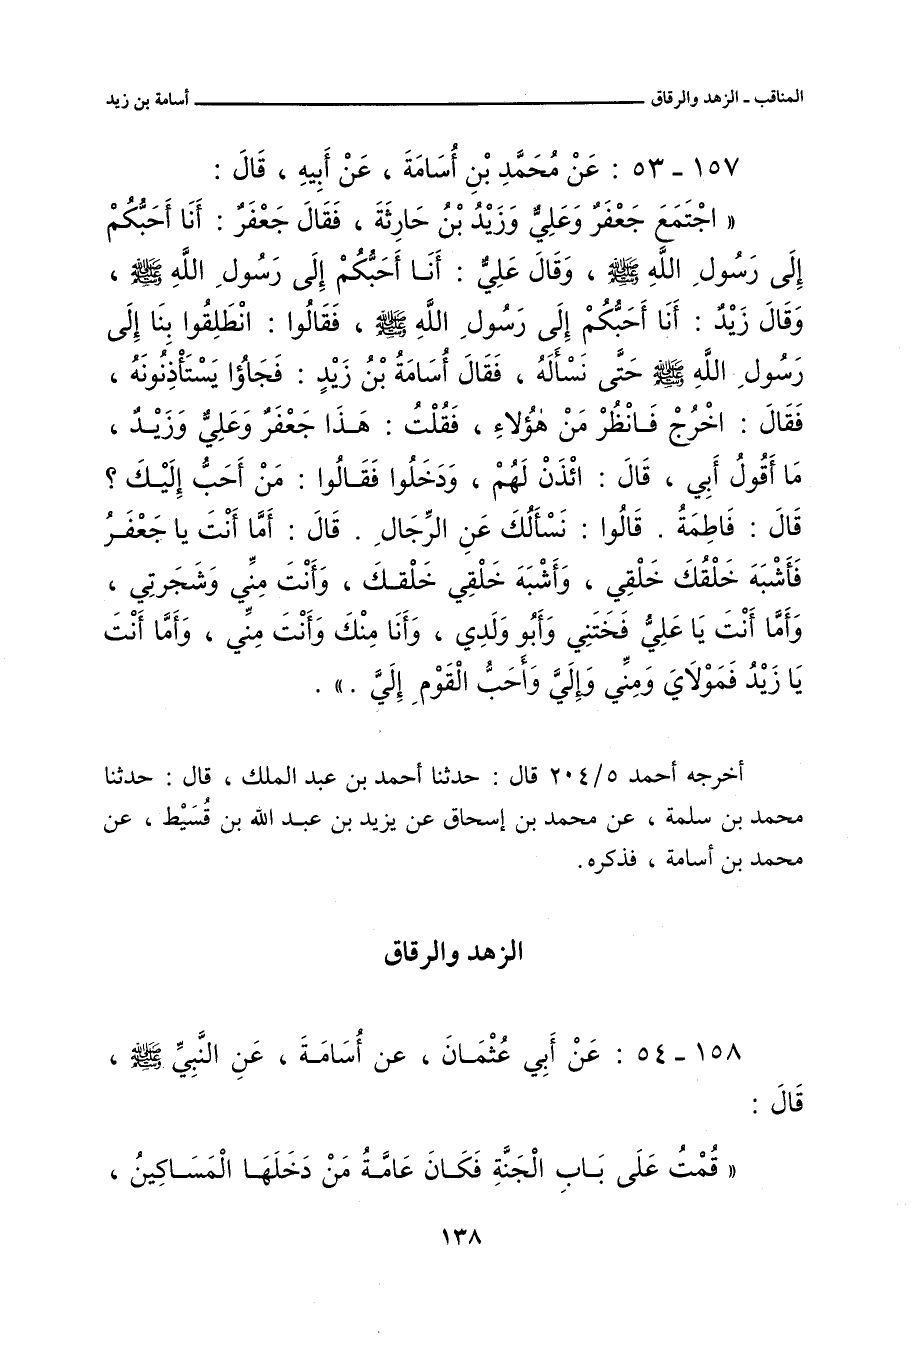 المناقب ـ الزهد والرقاق ــــــــــــــــــــــــــــــــــــــــــــــ أسامة بن زيد
١٥٧ ـ ٥٣ : عَنْ مُحَمَّدِ بْنِ أُسَامَةَ ، عَنْ أَبِيهِ ، قَالَ :
« اجْتَمَعَ جَعْفَرٌ وَعَلِيٌّ وَزَيْدُ بْنُ حَارِثَةَ ، فَقَالَ جَعْفَرٌ : أَنَا أَحَبُّكُمْ
إِلَى رَسُولِ اللَّهِ ﷺ ، وَقَالَ عَلِيٌّ : أَنَــا أَحَبُّكُمْ إِلَى رَسُولِ اللَّهِ ﷺ ،
وَقَالَ زَيْدٌ : أَنَا أَحَبُّكُمْ إِلَى رَسُولِ اللَّهِ ﷺ ، فَقَالُوا : انْطَلِقُوا بِنَا إِلَى
رَسُولِ اللَّهِ ﷺ حَتَّى نَسْأَلَهُ ، فَقَالَ أُسَامَةُ بْنُ زَيْدٍ : فَجَاؤُا يَسْتَأْذِنُونَهُ ،
فَقَالَ : اخْرُجْ فَـانْظُرْ مَنْ هٰؤُلاءِ ، فَقُلْتُ : هَـذَا جَعْفَرٌ وَعَلِيٌّ وَزَيْـدٌ ،
مَا أَقُولُ أَبِي ، قَالَ : ائْذَنْ لَهُمْ ، وَدَخَلُوا فَقَـالُوا : مَنْ أَحَبُّ إِلَيْـكَ ؟
قَالَ : فَاطِمَةُ . قَالُوا : نَسْأَلُكَ عَنِ الرِّجَالِ . قَالَ : أَمَّا أَنْتَ يا جَعْفَـرُ
فَأَشْبَهَ خَلْقُكَ خَلْقِي ، وَأَشْبَهَ خَلْقِي خَلْقـكَ ، وَأَنْتَ مِنِّي وَشَجَرَتِي ،
وَأَمَّا أَنْتَ يَا عَلِيُّ فَخَتَنِي وَأَبُو وَلَدِي ، وَأَنَا مِنْكَ وَأَنْتَ مِنِّي ، وَأَمَّا أَنْتَ
يَا زَيْدُ فَمَوْلَايَ وَمِنِّي وَإِلَيَّ وَأَحَبُّ الْقَوْمِ إِلَيَّ . » .
أخرجه أحمد ٢٠٤/٥ قال : حدثنا أحمد بن عبد الملك ، قال : حدثنا
محمد بن سلمة ، عن محمد بن إسحاق عن يزيد بن عبـد الله بن قُسَيْط ، عن
محمد بن أسامة ، فذكره .
الزهد والرقاق
١٥٨ ـ ٥٤ : عَنْ أَبِي عُثْمَـانَ ، عن أُسَامَـةَ ، عَنِ النَّبِيِّ ﷺ ،
قَالَ :
« قُمْتُ عَلَى بَـابِ الْجَنَّةِ فَكَـانَ عَامَّـةُ مَنْ دَخَلَهَـا الْمَسَـاكِينُ ،
١٣٨